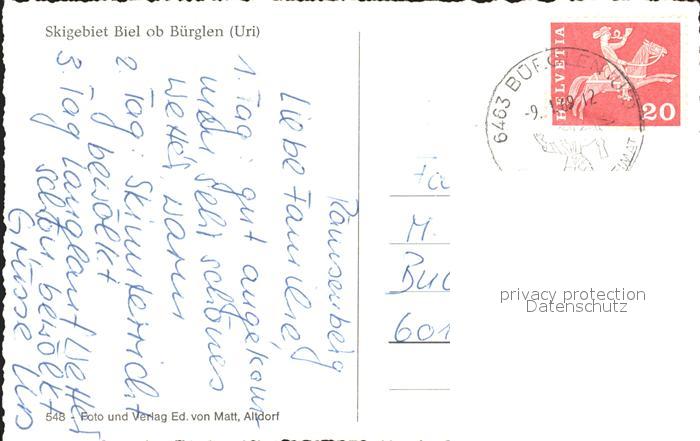 Skigebiet Biel ob Bürglen (Uri)
HELVETIA
20
6463 BÜRGLEN
-9.
12
Liebe Familie,
1. Tag: gut angekom
men sehr schönes
Wetter, warm
2. Tag: Skiunterricht
bewölkt
3. Tag Langlauf Wetter
schön bewölkt
Grüsse Urs
Fa
M.
Buc
601
privacy protection
Datenschutz
548 - Foto und Verlag Ed. von Matt, Altdorf